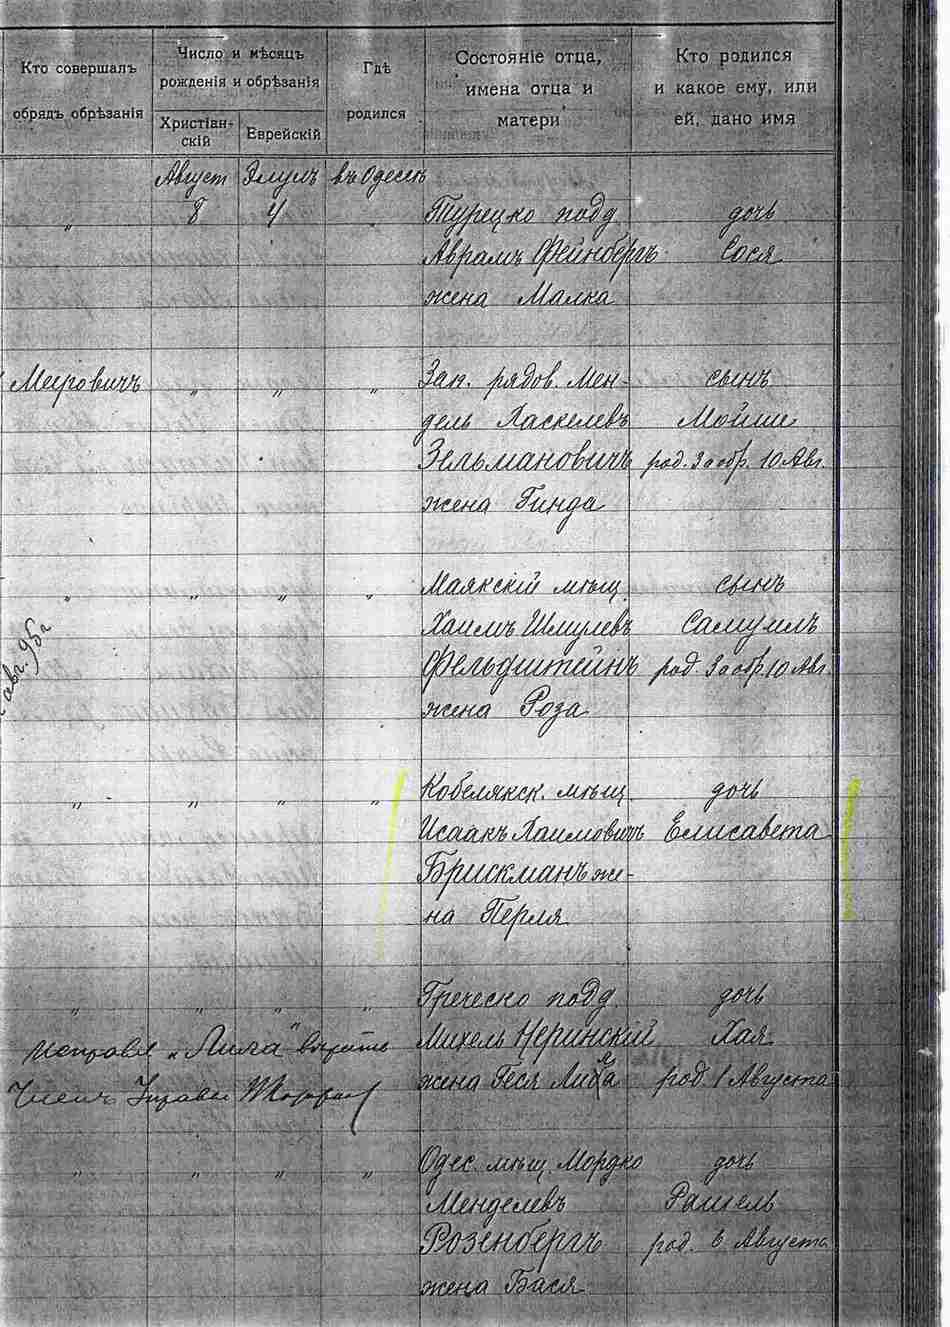 Кто совершалъ
обрядъ обрѣзанія
Число и мѣсяцъ
рожденія и обрѣзанія
Христіан-
скій
Еврейскій
Гдѣ
родился
Состояніе отца,
имена отца и
матери
Кто родился
и какое ему, или
ей, дано имя
Август Элулъ въ Одессѣ
" 8 4 " Турецко подд. дочь
Аврамъ Фейнбергъ Сося
жена Малка
Меировичъ " " " Зап. рядов. Мен- сынъ
дель Хаскелевъ Мойше
Зельмановичъ род. 3 а обр. 10 Авг.
жена Гинда
" " " " Маякскій мѣщ. сынъ
Хаимъ Шмулевъ Самуилъ
Фельдштейнъ род. 3 а обр. 10 Авг.
жена Роза
авг. 95 г.
" " " " Кобелякск. мѣщ. дочь
Исаакъ Хаимовичъ Елисавета
Брискманъ же-
на Перля
" " " " Греческо подд. дочь
Михель Неринский Хая
жена Геся Либа род 1 Августа
"Лига" вѣрить
Членъ Управы
" " " " Одес. мѣщ. Мордко дочь
Менделевъ Рашель
Розенбергъ род. 6 Августа
жена Бася